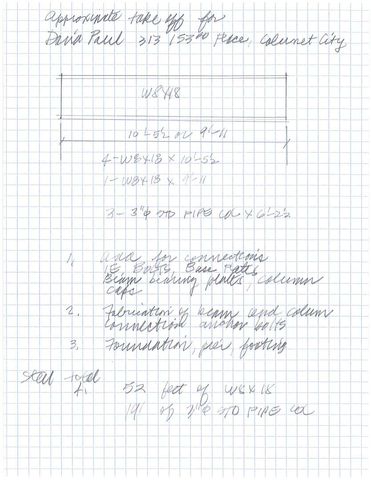 Approximate take off for
David Paul 313 153rd Place, Calumet City
W8x18
10'-5½ or 9'-11
4-W8x18 x 10'-5½
1-W8x18 x 9'-11
3- 3"φ STD PIPE COL x 6'-2½
1. Add for connections
IE, Bolts, Base Plates
Beam bearing plates, column
caps
2. Fabrication of beam and column
connection anchor bolts
3. Foundation, pier, footing
Steel total
52 feet of W8x18
19' of 3"φ STD PIPE COL